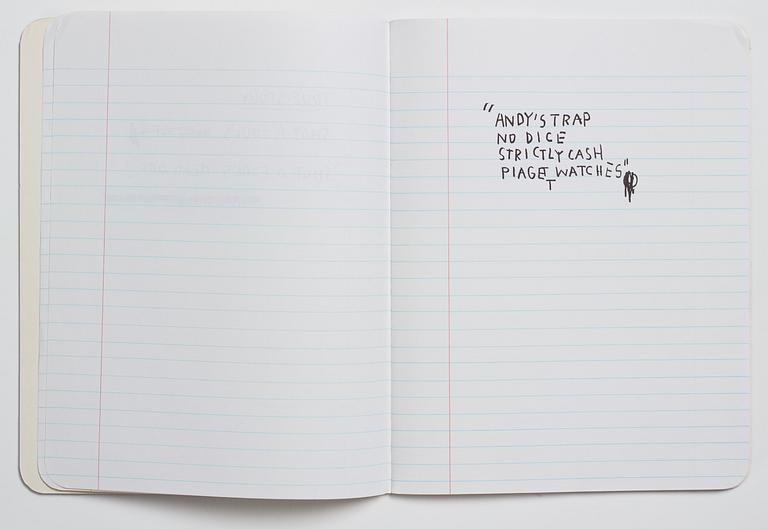 "ANDY'S TRAP
NO DICE
STRICTLY CASH
PIAGET WATCHES"
T